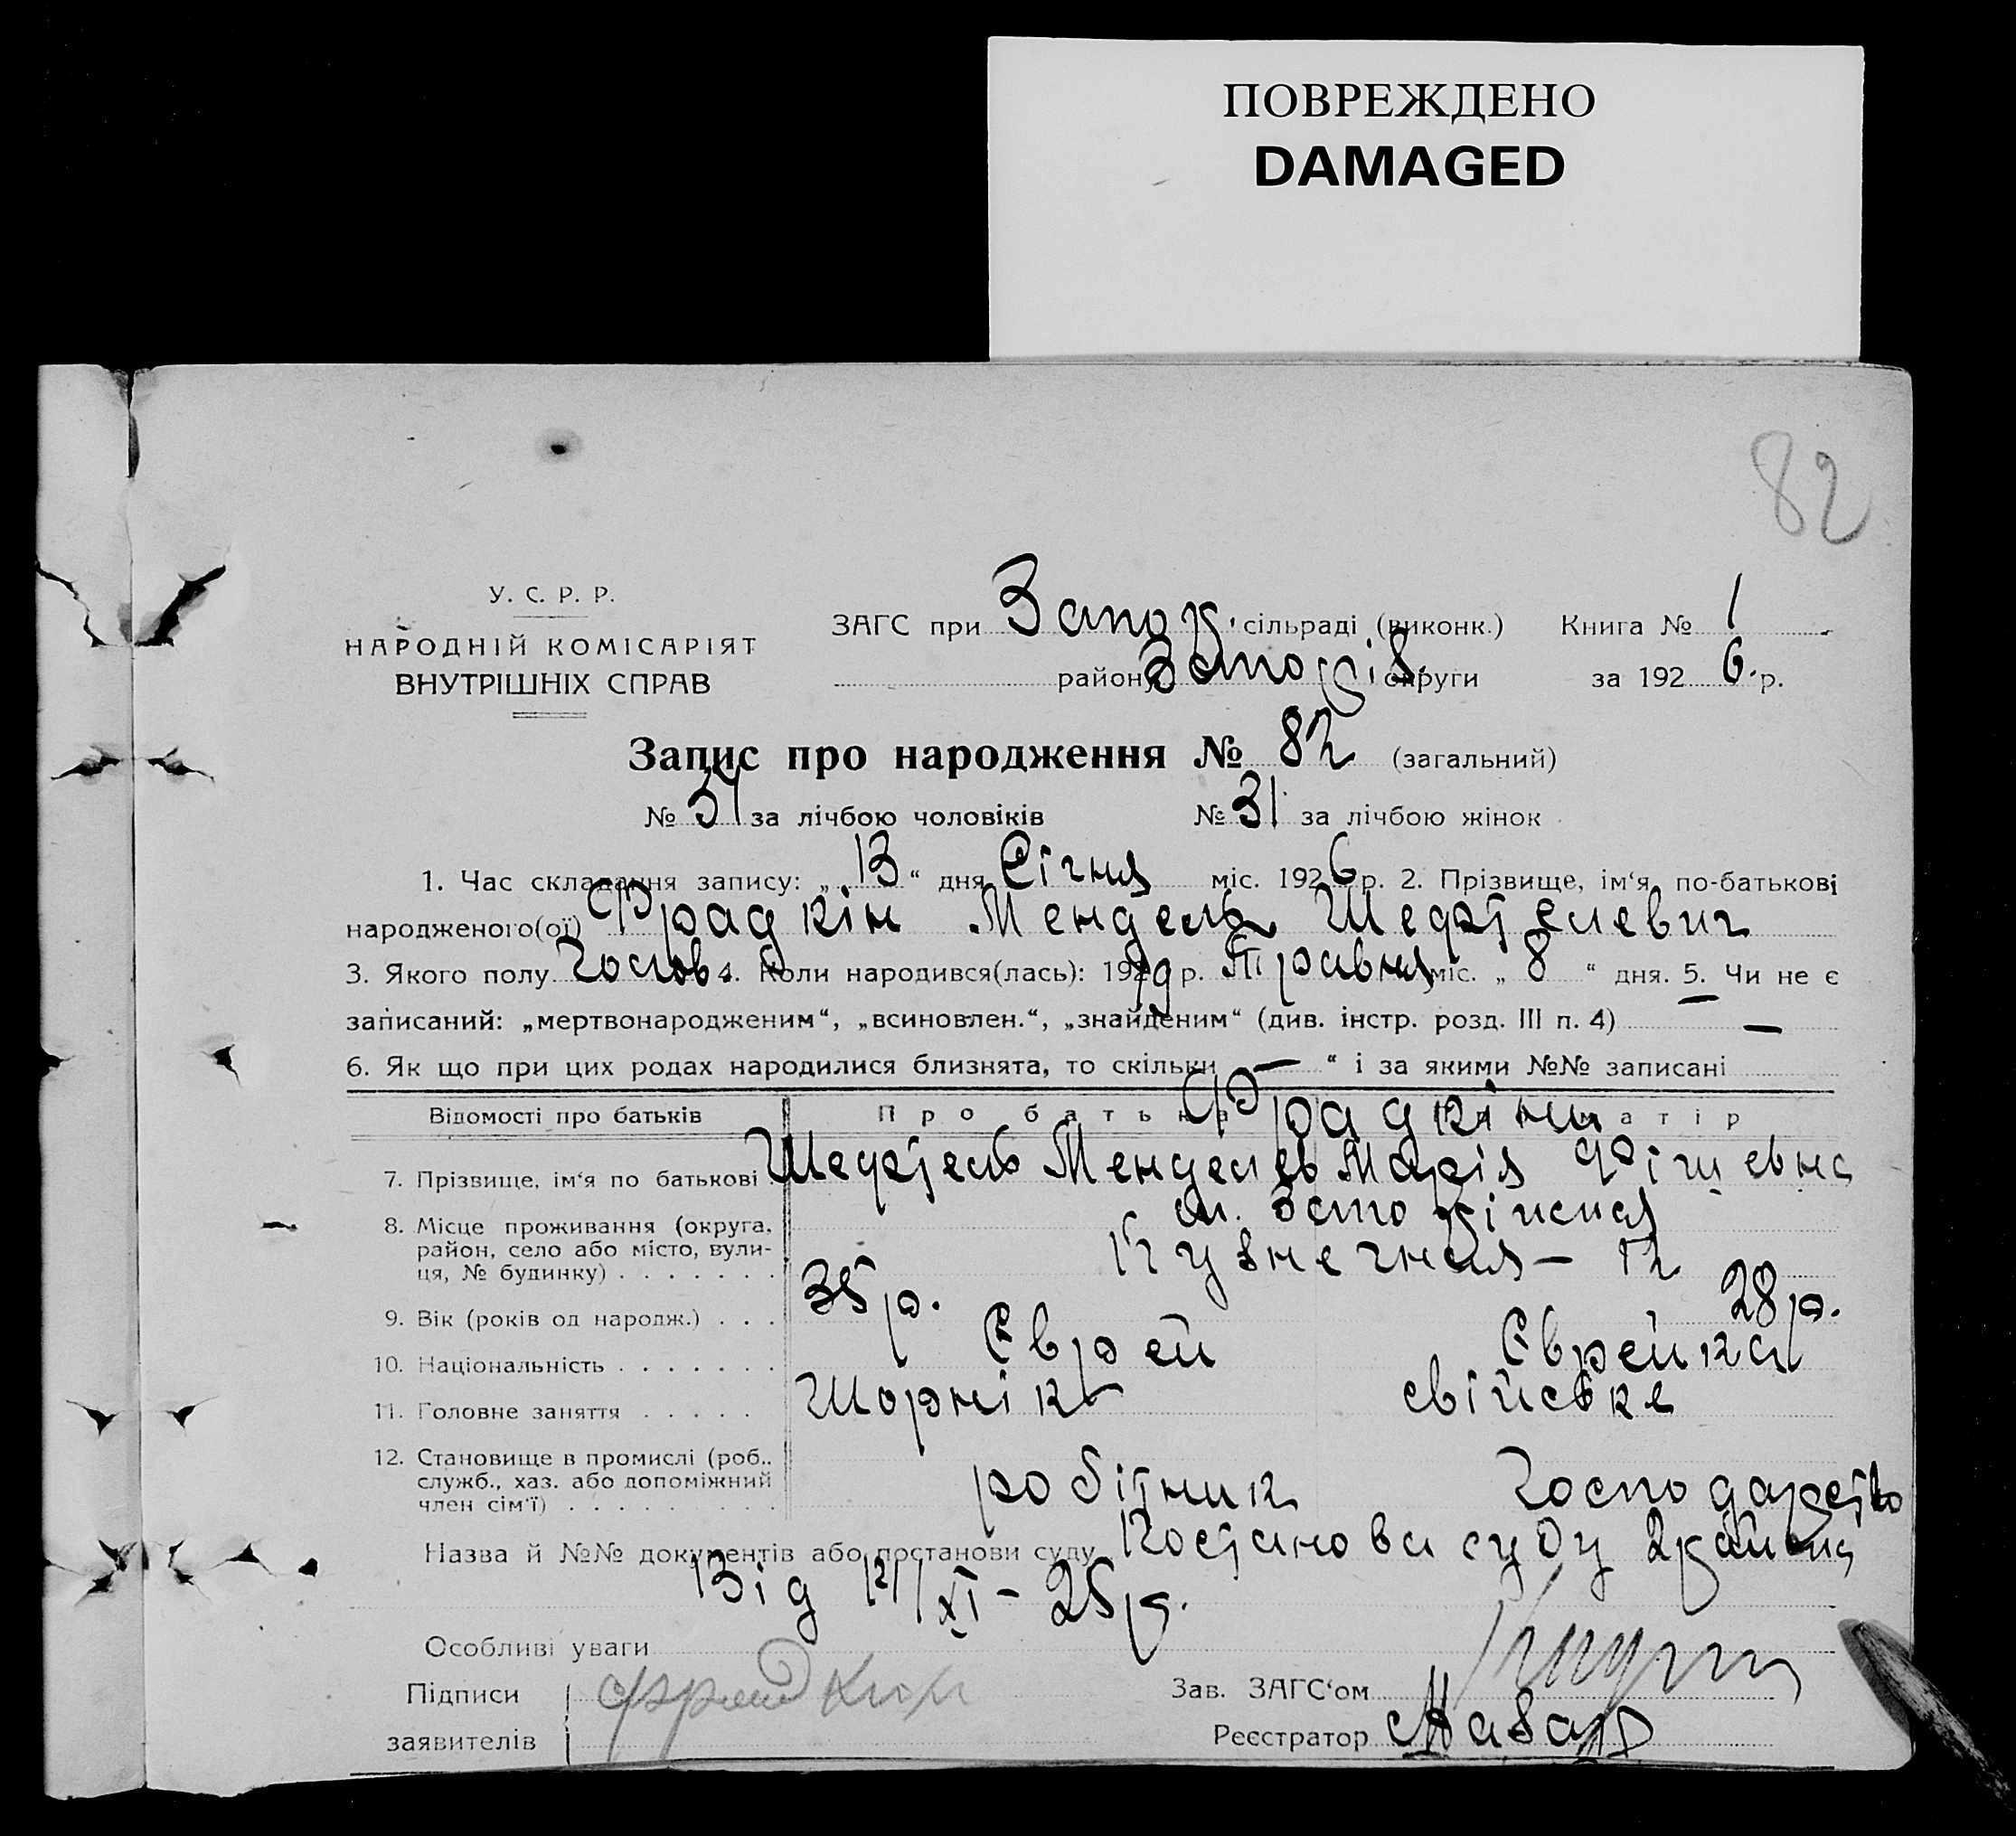 ПОВРЕЖДЕНО
DAMAGED
82
У. С. Р. Р.
НАРОДНІЙ КОМІСАРІЯТ
ВНУТРІШНІХ СПРАВ
ЗАГС при Запок. сільраді (виконк.) Книга № 1
район Запоріз. округи за 1926. р.
Запис про народження № 82 (загальний)
№ 51 за лічбою чоловіків № 31 за лічбою жінок
1. Час складання запису: „ 13 “ дня Січня міс. 1926 р. 2. Прізвище, ім‘я, по-батькові
народженого(ої) Фрадкін Мендель Шефтелевич
3. Якого полу Чолов. 4. Коли народився(лась): 19 р. Травня міс. „ 8 “ дня. 5. Чи не є
записаний: „мертвонародженим“, „всиновлен.“, „знайденим“ (див. інстр. розд. III п. 4) —
6. Як що при цих родах народилися близнята, то скільки — “ і за якими №№ записані
Відомості про батьків Про батька матір
Фрадкіни
7. Прізвище, ім‘я по батькові Шефтель Менделев Марія Фішевна
8. Місце проживання (округа, район, село або місто, вулиця, № будинку) . . . . . . . м. Запоріжжя
Кузнечная — 12
9. Вік (років од народж.) . . . 35 р. 28 р.
10. Національність . . . . . . . Єврей Єврейка
11. Головне заняття . . . . . Шорнік свійське
12. Становище в промислі (роб., служб., хаз. або допоміжний член сім‘ї) . . . . . . . . . робітник господарство
Назва й №№ документів або постанови суду Постанова суду 2 
Від 12/XI – 25 р.
Особливі уваги
Підписи Фрадкин Зав. ЗАГС‘ом
заявителів Реєстратор